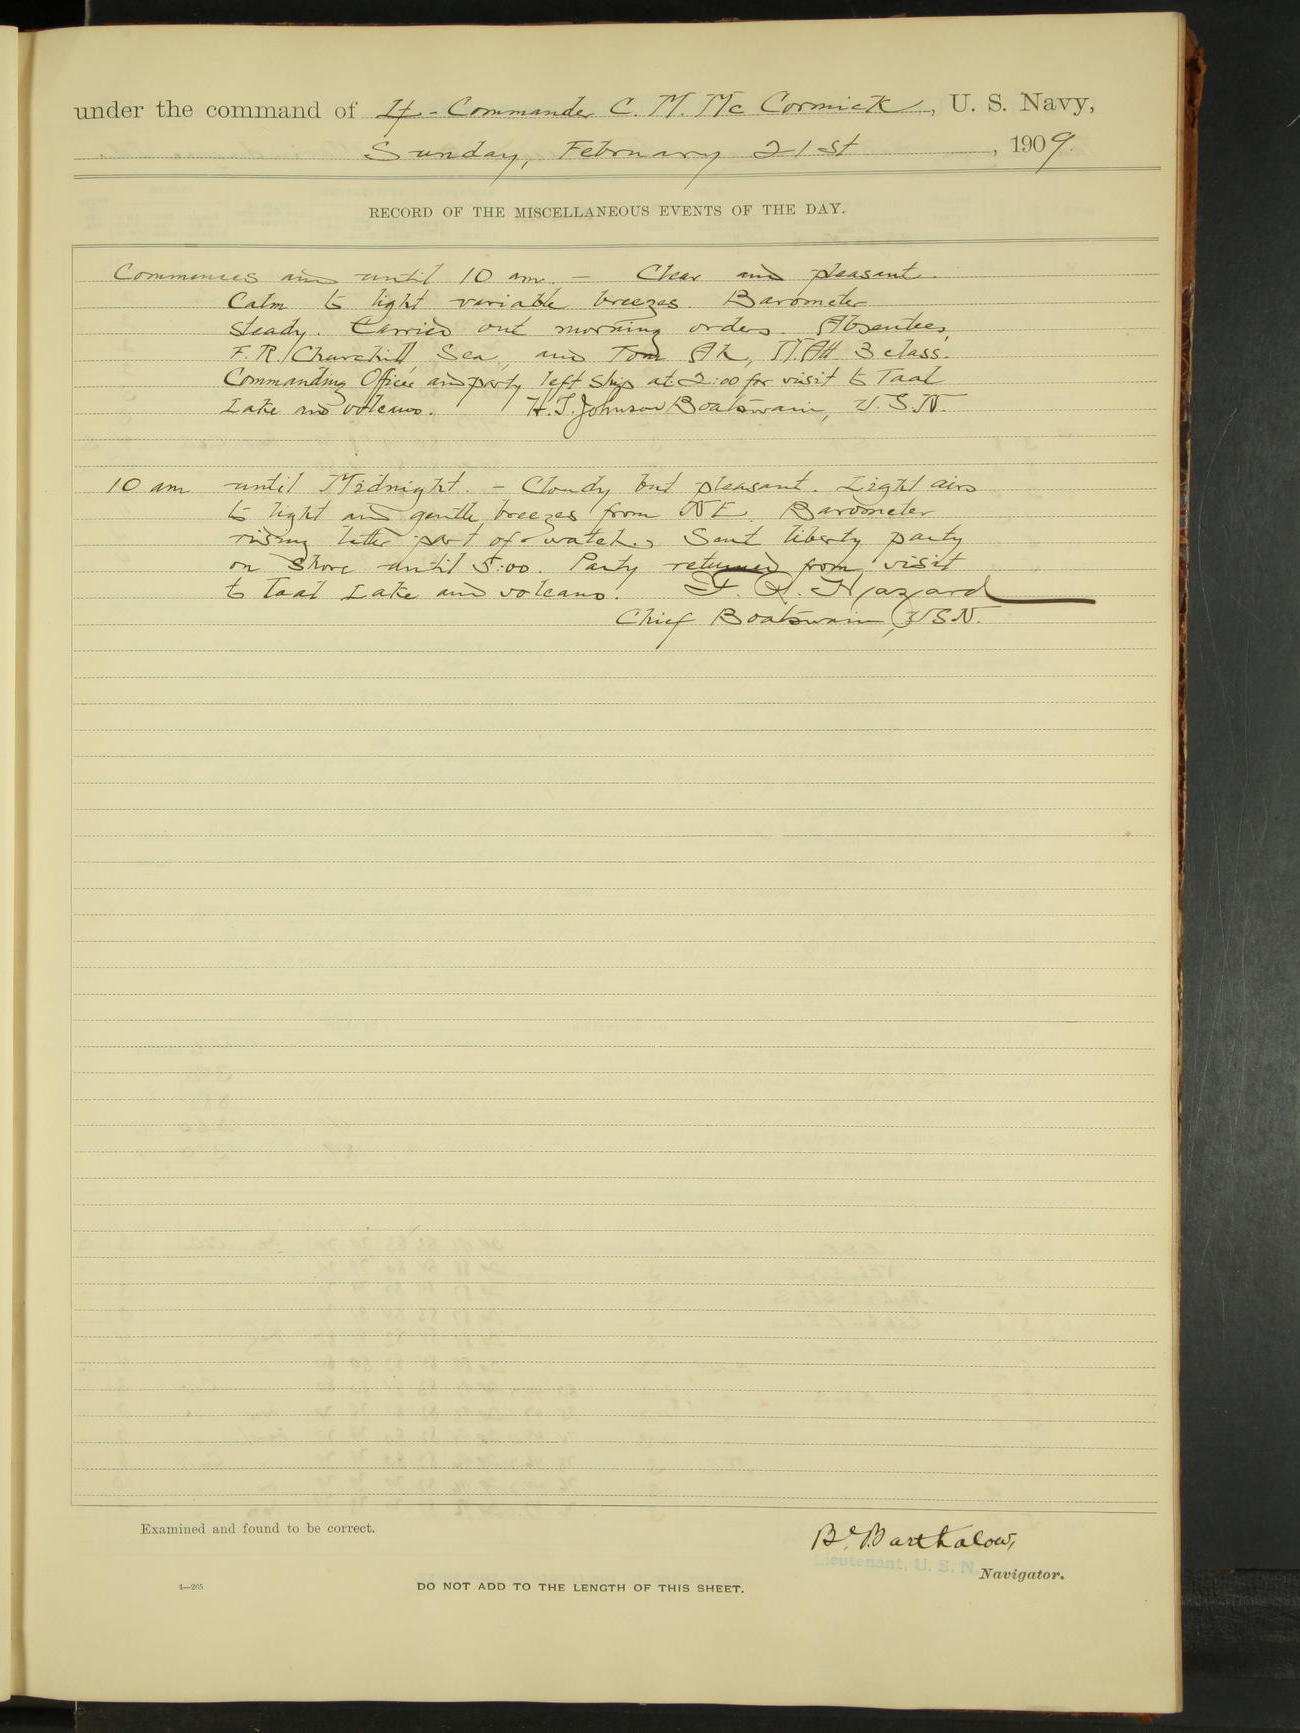 under the command of Lt-Commander C. M. McCormick, U. S. Navy,
Sunday, February 21st, 1909.
RECORD OF THE MISCELLANEOUS EVENTS OF THE DAY.
Commences and until 10 am. - Clear and pleasant.
Calm to light variable breezes. Barometer
steady. Carried out morning orders. Absentees,
F. R. Churchill, Sea, and Tom Ah, M.Att 3 class.
Commanding Officer and party left ship at 2:00 for visit to Taal
Lake and volcano. H. T. Johnson Boatswain, U.S.N.
10 am until Midnight. - Cloudy but pleasant. Light airs
to light and gentle breezes from NE. Barometer
rising latter part of watch. Sent liberty party
on shore until 5:00. Party returned from visit
to Taal Lake and volcano. Hazard
Chief Boatswain, USN.
Examined and found to be correct.
Barthalow,
Lieutenant, U. S. N.
Navigator.
4—265
DO NOT ADD TO THE LENGTH OF THIS SHEET.